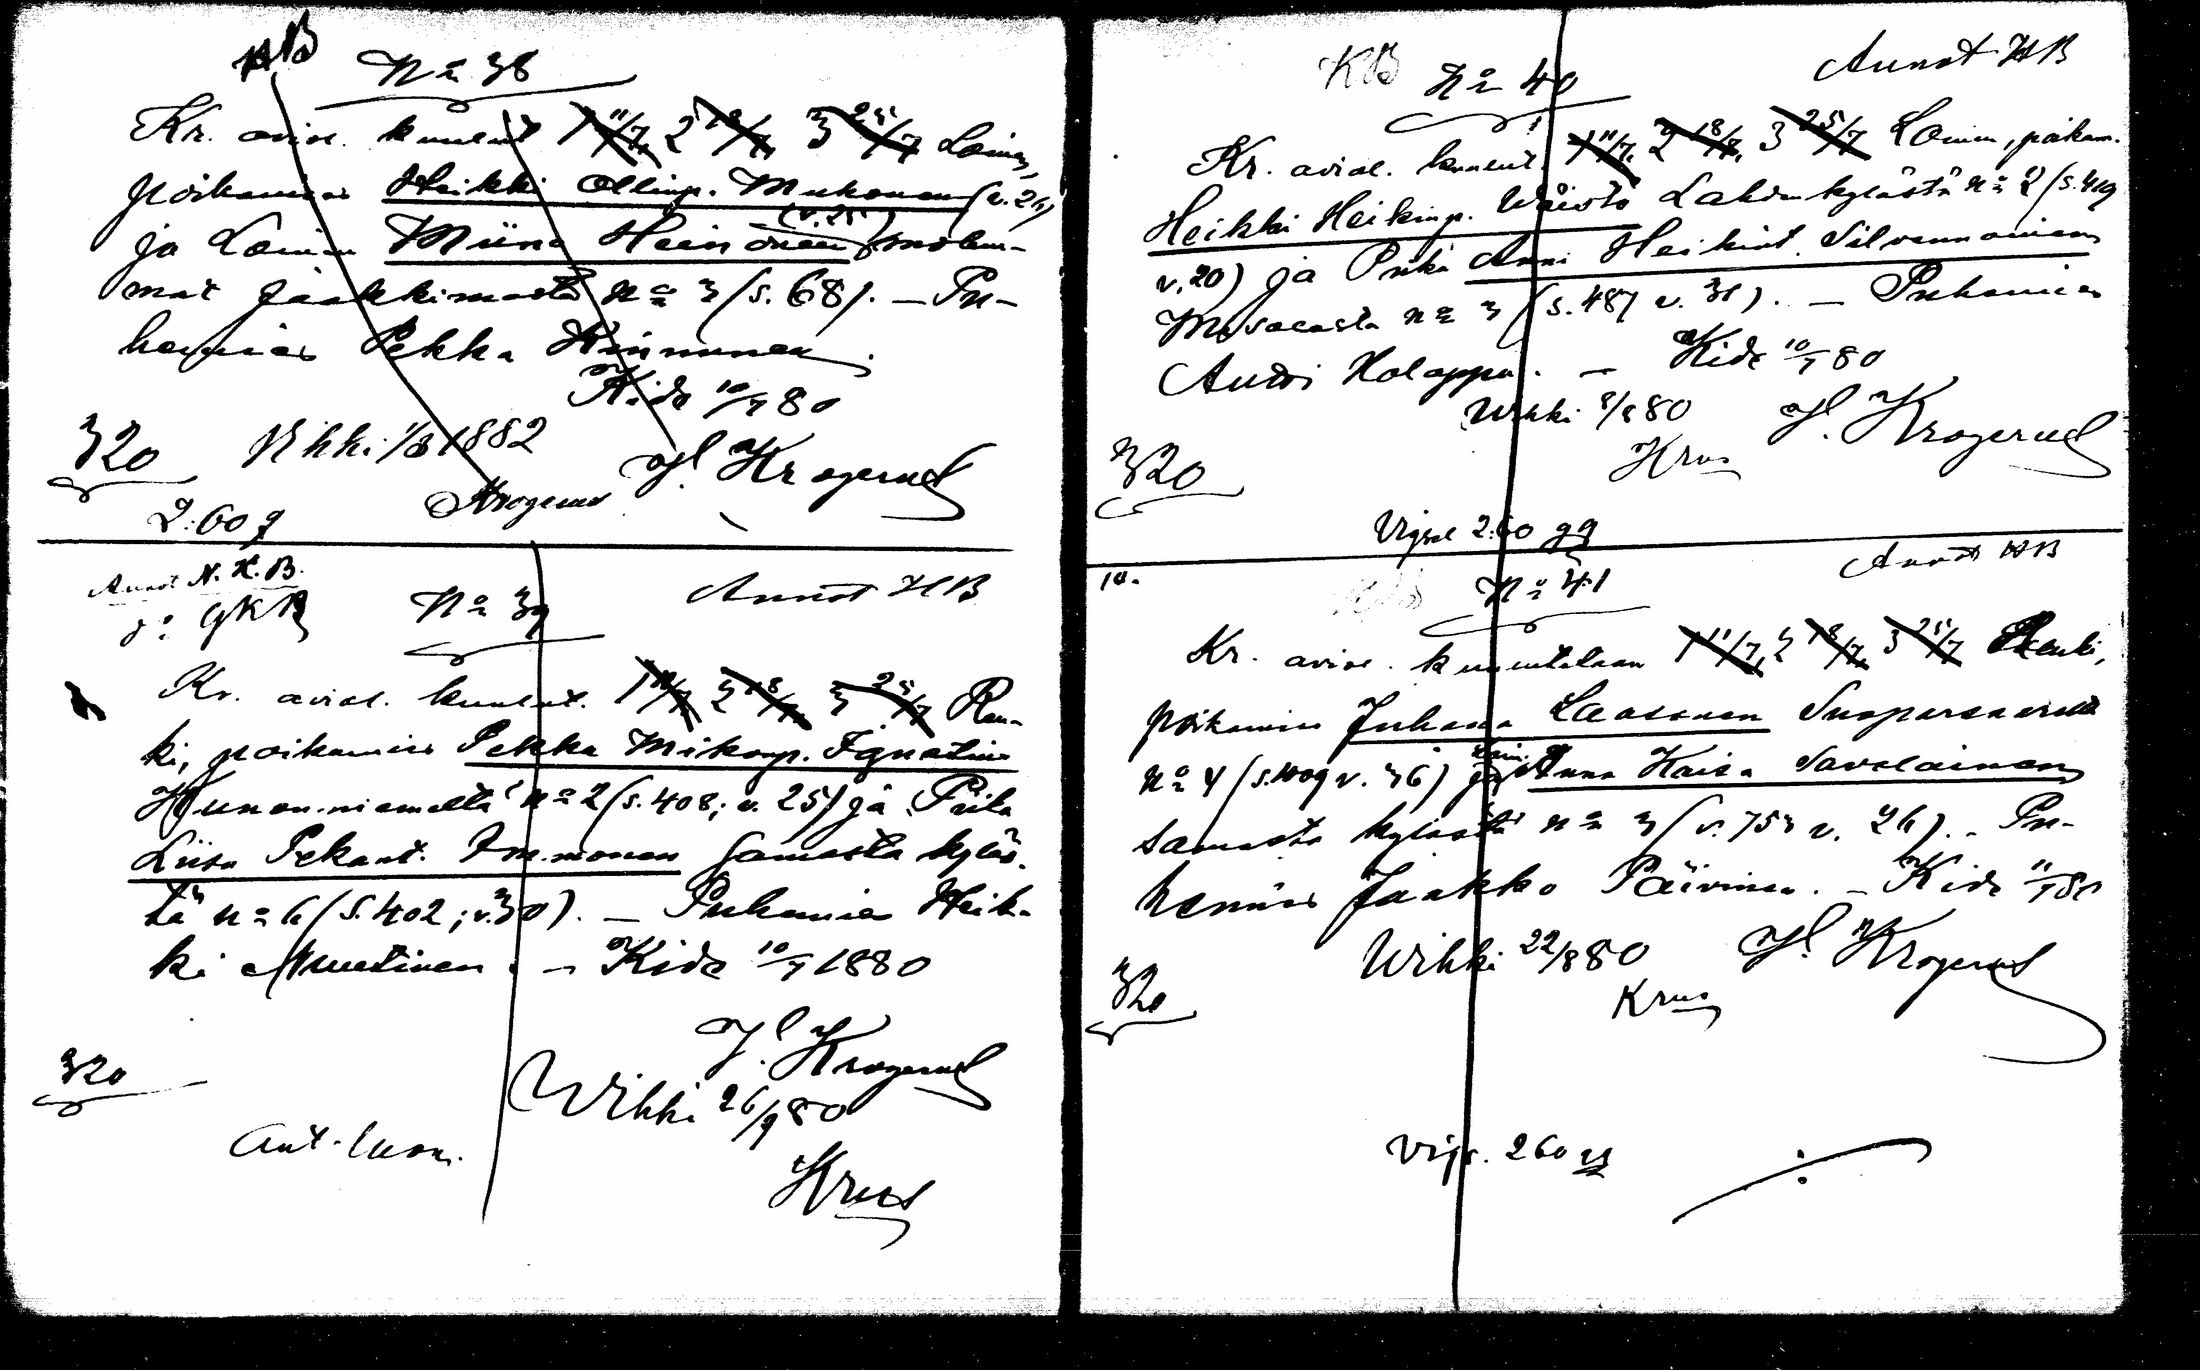 KB
No 38
Kr. aviol. kuulut 1 11/7, 2 18/7, 3 25/7 Loinm,
poikamies Heikki Ollinp. Mukonen (v. 26)
(v. 25)
ja Loinm Miina Heinonen molem-
mat Jaakkimasta No 3 (s. 68). — Pu-
hemies Pekka Hinnunen.
Kide 10/7 80
320 Vihki 1/3 1882
J. Krogerus
Krogerus
2:60
Annot N. K. B.
No 39
Annot KB
Kr. aviol. kuulut. 1 11/7 2 18/7 3 25/7 Ren-
ki, poikamies Pekka Mikonp. Ignatius
Hunonniemeltä No 2 (s. 408; v. 25) ja Piika
Liisa Pekant. Immonen samasta kyläs-
tä No 6 (s. 402; v. 30). — Puhemies Heik-
ki Muutinen. — Kide 10/7 1880
J. Krogerus
320
Vihki 26/9 80
Krus
KB No 40
Annot KB
Kr. aviol. kuulut. 1 11/7, 2 18/7, 3 25/7 Loinm, poikam.
Heikki Heikinp. Wäistö Lahdenkylästä No 2 (s. 419
v. 20) ja Piika Anni Heikint. Silvennoinen
No 3 (s. 487 v. 31). — Puhemies
Antti Holappa. — Kide 10/7 80
Wihki 8/8 80
J. Krogerus
Krus
320
Vigsel 2:60
No 41
Annot KB
Kr. aviol. kuulutetaan 1 11/7, 2 18/7, 3 25/7 Renki,
poikamies Juhana Laasonen Suoparsaarelta
No 4 (s. 1009 v. 36) ja Anna Kaisa Savolainen
samasta kylästä No 3 (s. 753 v. 26). — Pu-
hemies Jaakko Päivinen. — Kide 11/7 80
Wihki 22/8 80
J. Krogerus
Krus
320
Vigs. 260